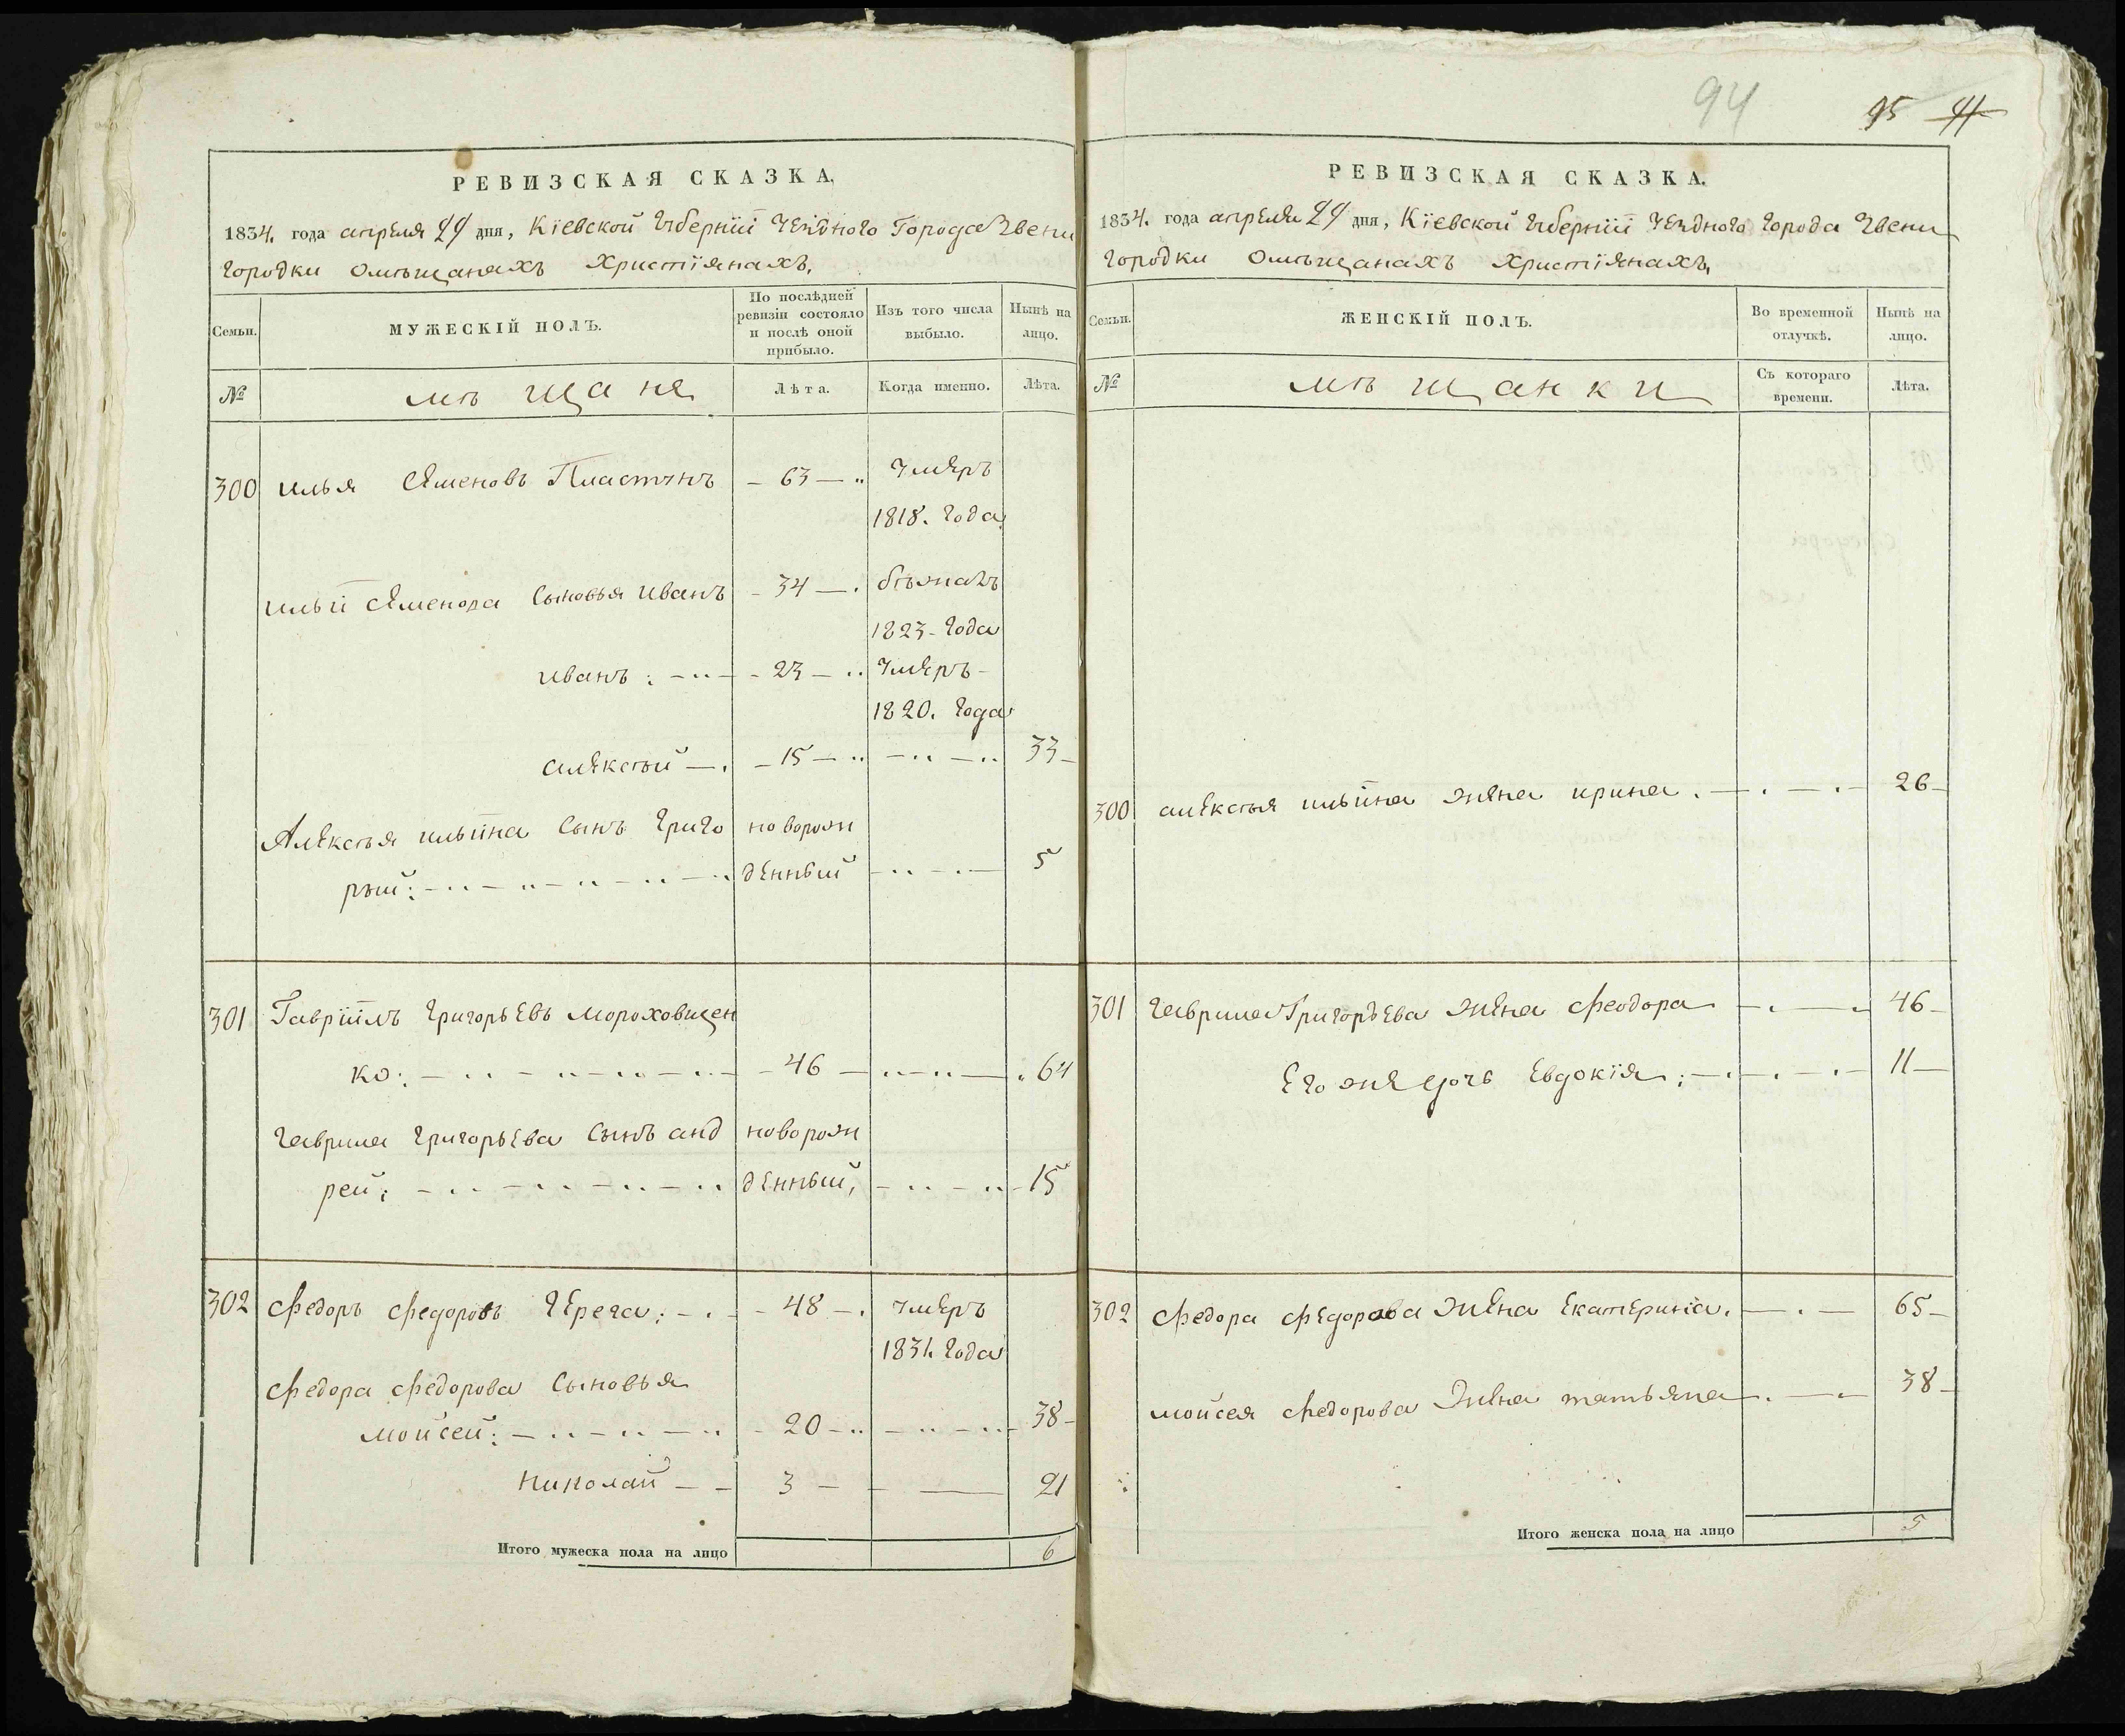 94
95 41
РЕВИЗСКАЯ СКАЗКА.
1834. года апреля 29 дня, Кіевской Губерніи Уезднаго Города Звени
городки омѣщанахъ христіянахъ.
Семьи.
МУЖЕСКІЙ ПОЛЪ.
По послѣдней
ревизіи состояло
и послѣ оной
прибыло.
Изъ того числа
выбыло.
Нынѣ на
лицо.
№
мѣщане
Лѣта.
Когда именно.
Лѣта.
300 илья семеновъ Пластунъ – 63 – умеръ
1818. года
ильи семенова сыновья иванъ – 34 – бѣжалъ
1823 – года
иванъ: – 23 – умеръ –
1820. года
алексѣй – 15 – 33 –
Алексѣя ильина сынъ григо новорож
рый: денный 5
301 Гавріилъ григорьевъ мороховщен
ко: – 46 – 64
гаврила григорьева сынъ анд новорож
рей: денный, 15
302 Федоръ федоровъ Черега: – 48 – умеръ
1831. года
федора федорова сыновья
мойсей: – 20 – 38 –
Николай – 3 – 21
Итого мужеска пола на лицо 6
РЕВИЗСКАЯ СКАЗКА.
1834. года апреля 29 дня, Кіевской Губерніи Уезднаго города Звени
городки омѣщанахъ христіянахъ.
Семьи.
ЖЕНСКІЙ ПОЛЪ.
Во временной
отлучкѣ.
Нынѣ на
лицо.
№
мѣщанки
Съ котораго
времени.
Лѣта.
300 алексѣя ильина жена ирина. 26 –
301 гаврила Григорьева жена феодора 46 –
Его же дочь Евдокія: 11 –
302 федора федорова жена Екатерина. 65 –
мойсея федорова жена татьяна. 38 –
Итого женска пола на лицо 5